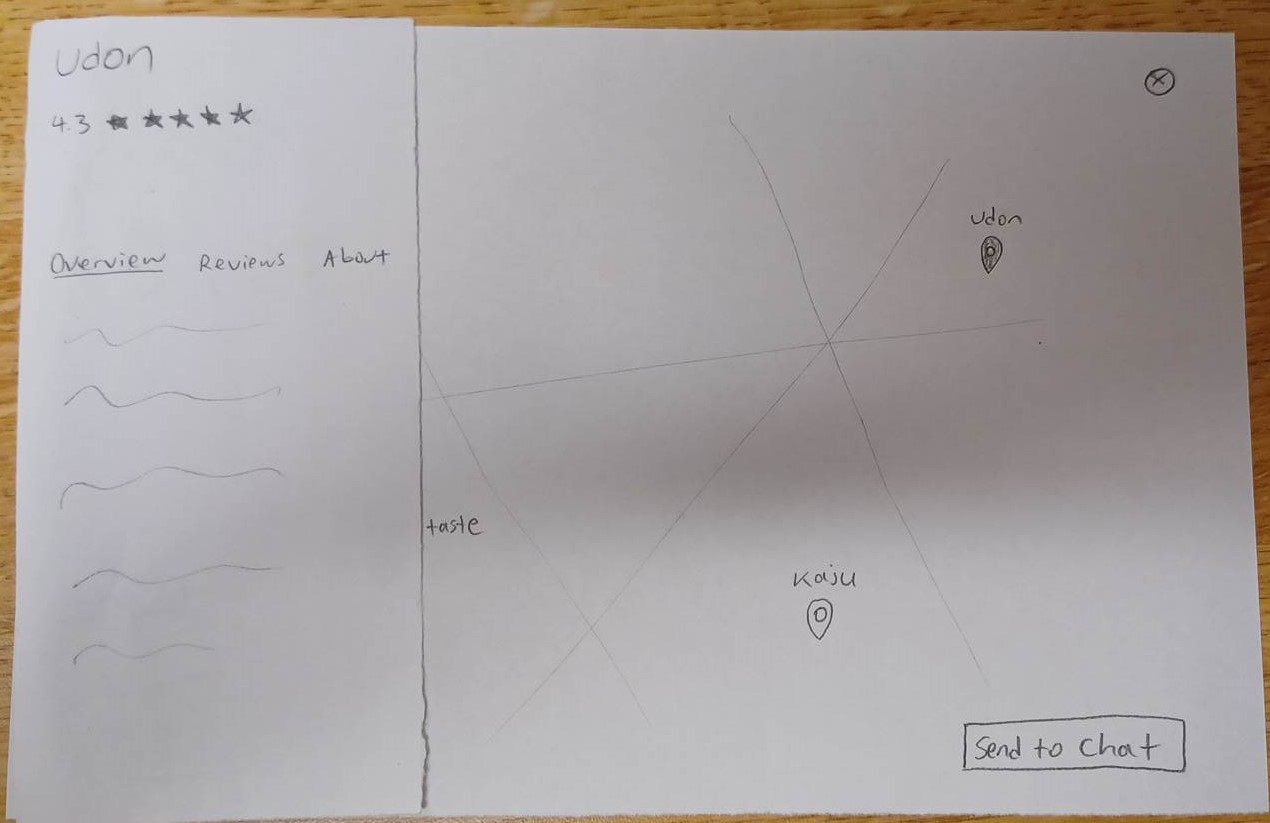 Udon
4.3 ★★★★★
Overview Reviews About
udon
taste
Kaju
Send to Chat